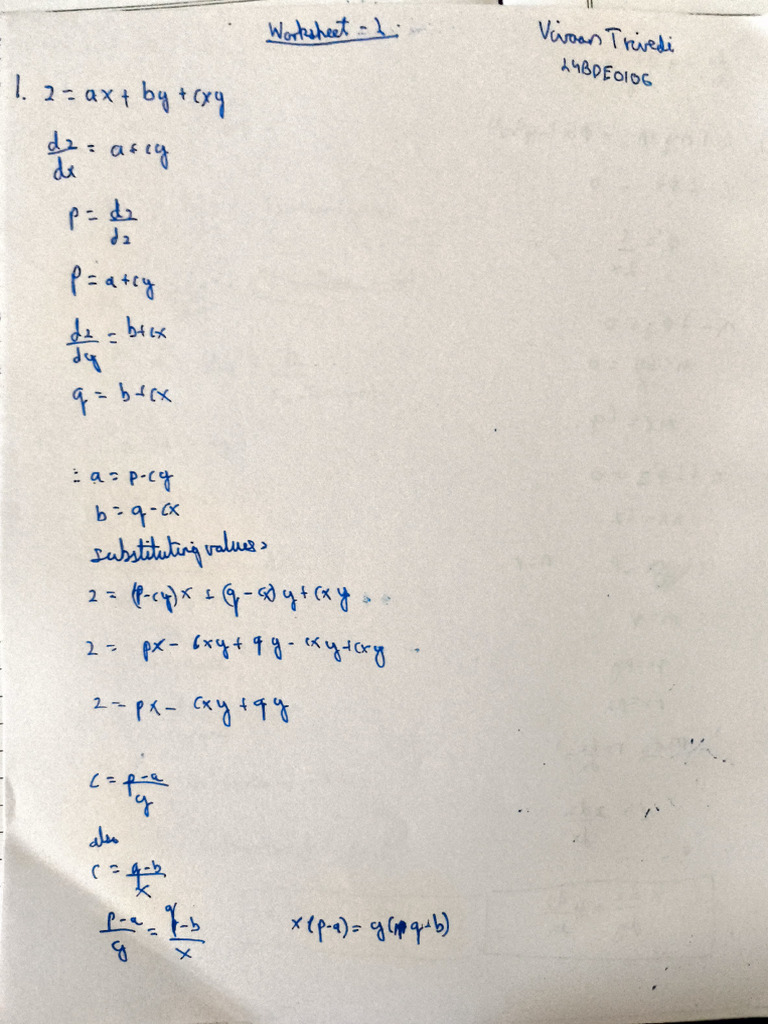 Worksheet - 2.
Vivaan Trivedi
24BDE0106
1. z = ax + by + cxy
dz/dx = a + cy
p = dz/dz
p = a + cy
dz/dy = b + cx
q = b + cx
∴ a = p - cy
b = q - cx
substituting values,
z = (p-cy)x + (q-cx)y + cxy
z = px - cxy + qy - cxy + cxy
z = px - cxy + qy
c = p-a/y
also
c = q-b/x
p-a/y = q-b/x x(p-a) = y(q-b)